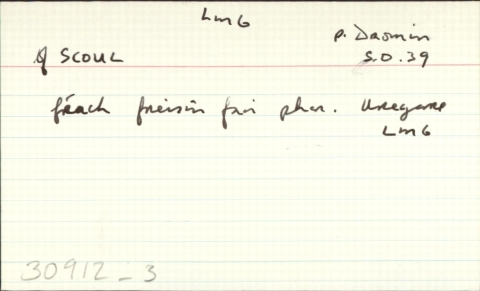 LMG
P. Dasmin
S.O.39
SCOUL
féach freisin fair phar.
LMG
30912-3